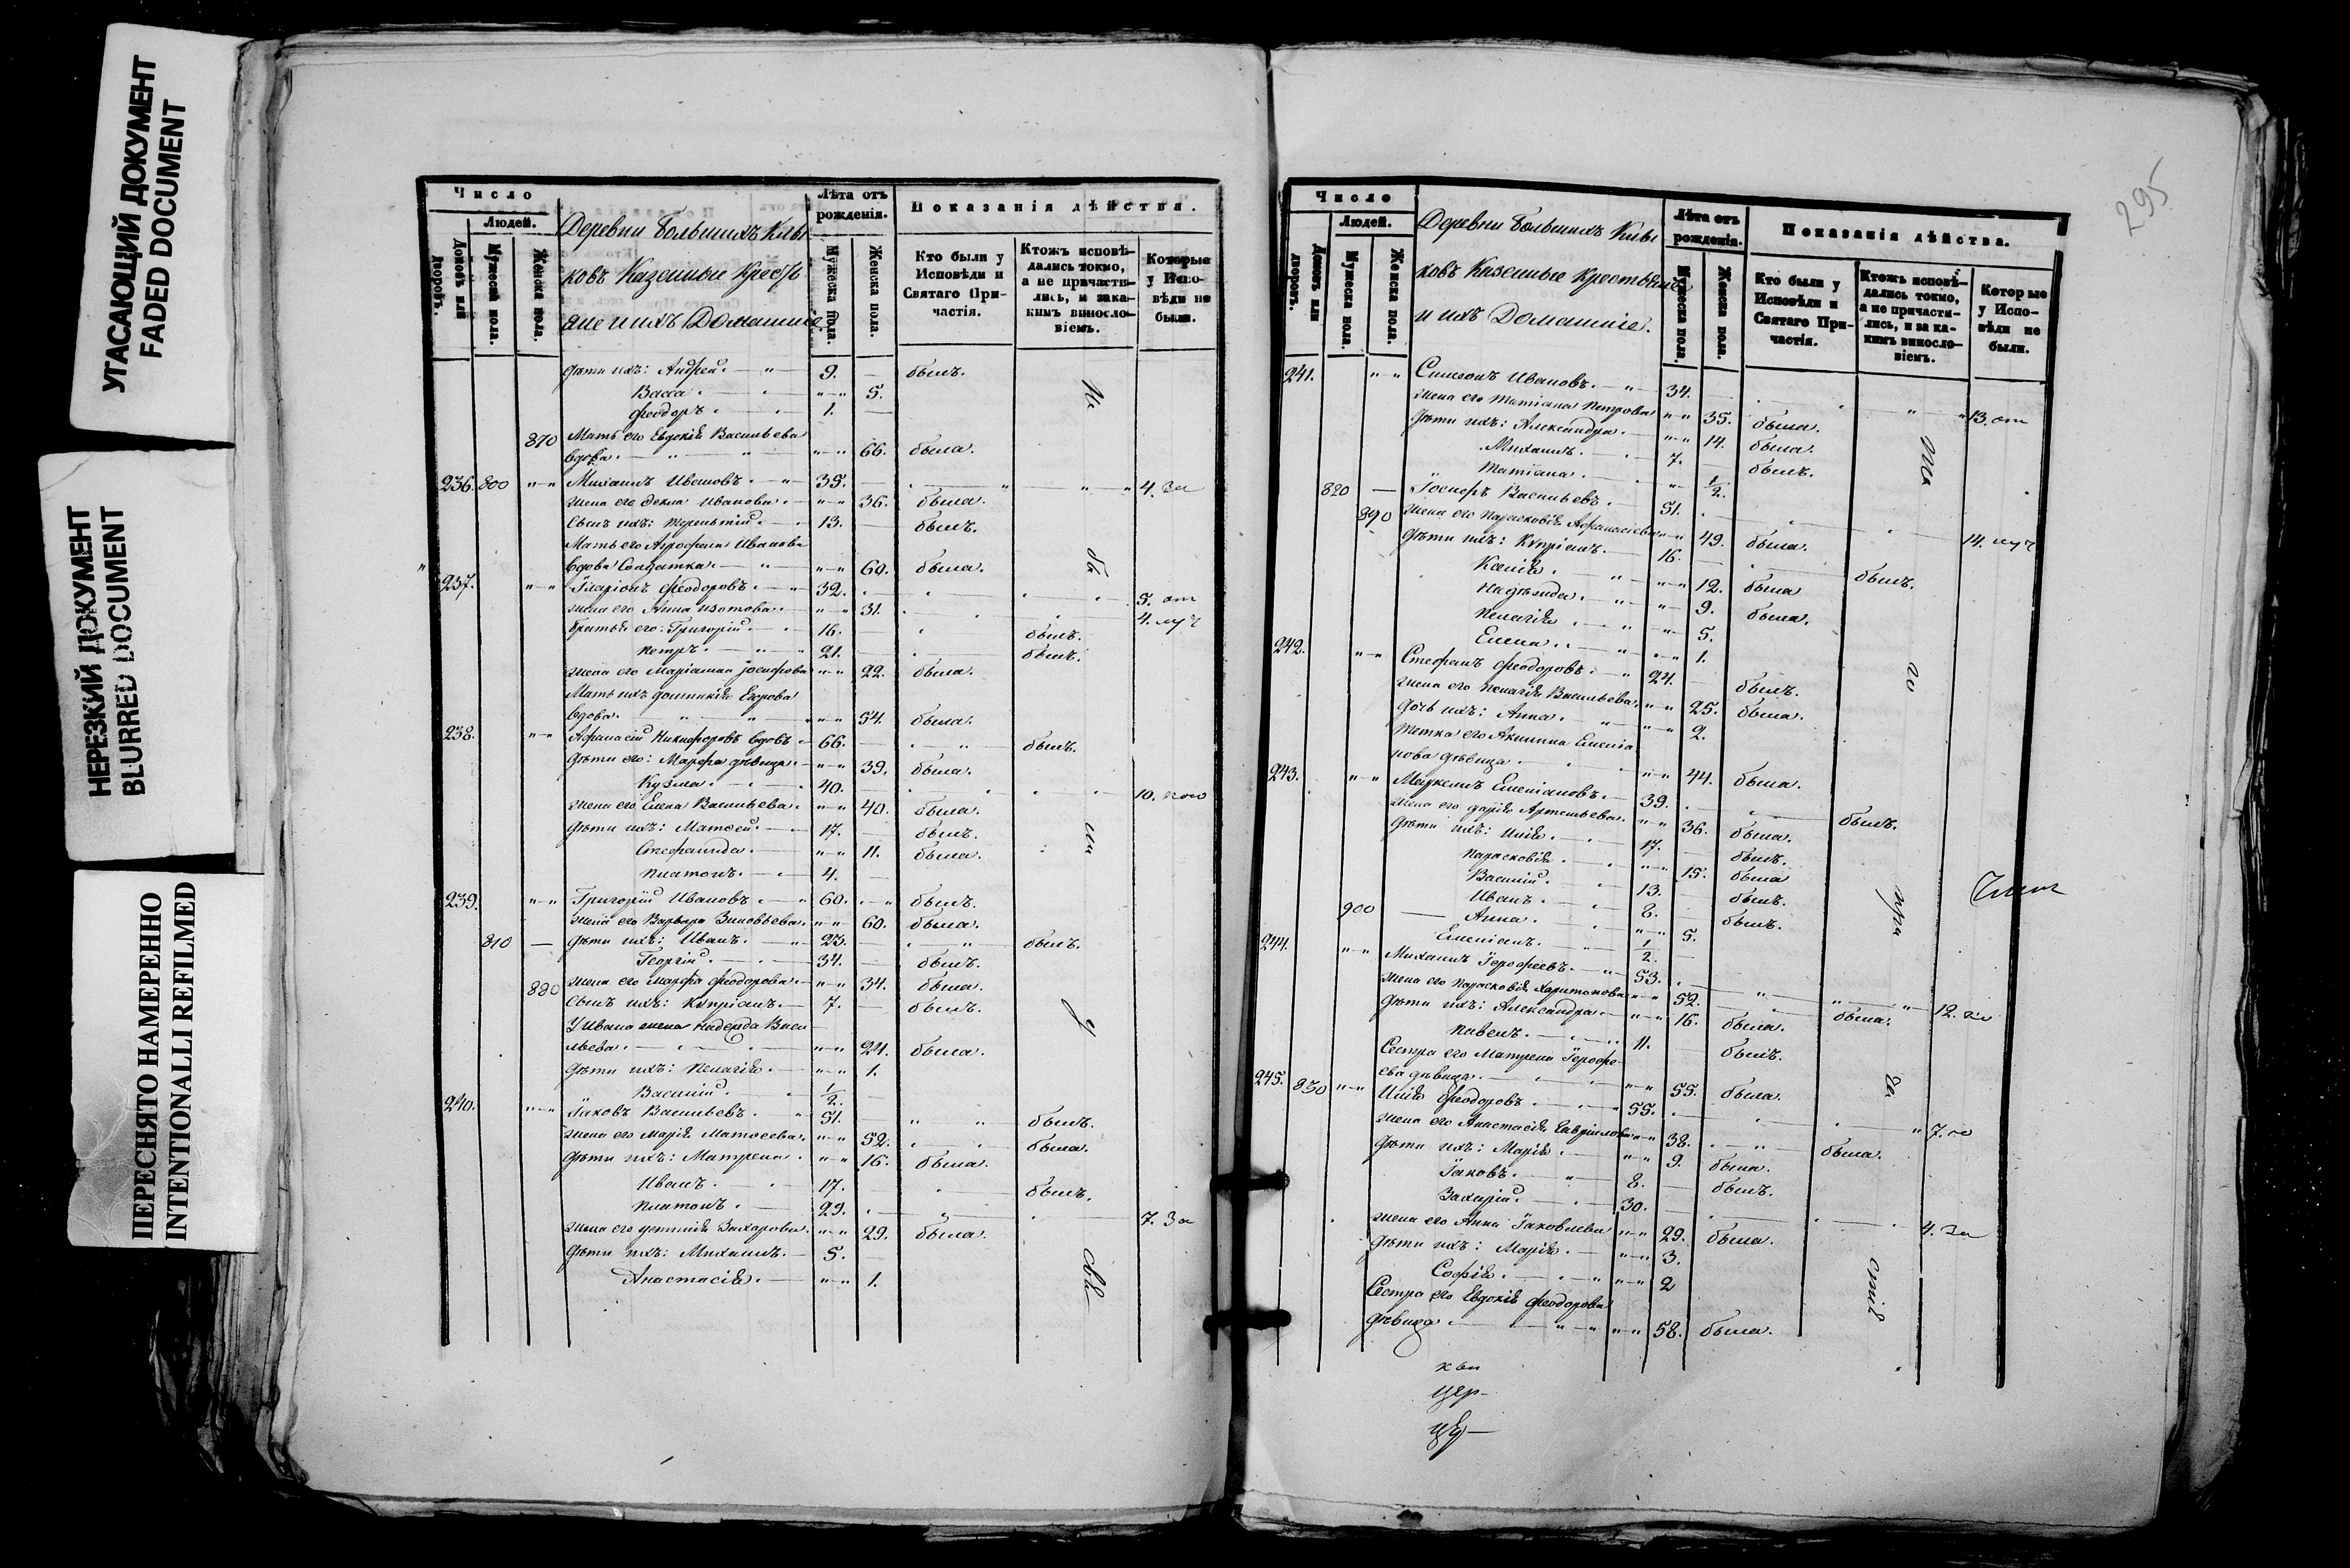 УГАСАЮЩИЙ ДОКУМЕНТ
FADED DOCUMENT
НЕРЕЗКИЙ ДОКУМЕНТ
BLURRED DOCUMENT
ПЕРЕСНЯТО НАМЕРЕННО
INTENTIONALLI REFILMED
Число
Людей.
Домовъ или дворовъ.
Мужеска пола.
Женска пола.
Деревни Большихъ Клы
ковъ Казенные Кресть
яне и ихъ Домашніе
Лѣта отъ рожденія.
Мужеска пола.
Женска пола.
Показанія дѣйства.
Кто были у Исповѣди и Святаго Причастія.
Ктожъ исповѣдались токмо, а не причастились, и за какимъ винословіемъ.
Которые у Исповѣди не были.
дѣти ихъ: Андрей. 9. былъ.
Васса. 5.
Феодоръ. 1.
870 Мать его Евдокія Васильева
вдова. 66. была.
236. 800 Михаилъ Ивановъ. 35. 4. За
жена его Фекла Иванова. 36. была.
Сынъ ихъ: Терентій. 13. былъ.
Мать его Агрофена Иванова
вдова Солдатка. 60. была.
237. Иларіонъ Феодоровъ. 32. 5. от
жена его Анна Изотова. 31. 4. луч
братья его: Григорій. 16. былъ.
Петръ. 21. былъ.
жена его Маріамна Іосифова 22. была.
Мать ихъ Домникія Егорова
вдова. 54. была.
238. Афанасій Никифоровъ вдовъ 66. былъ.
дѣти его: Марфа дѣвица. 39. была.
Кузма. 40. 10.
жена его Елена Васильева. 40. была.
дѣти ихъ: Матвей. 17. былъ.
Стефанида. 11. была.
Платонъ. 4.
239. Григорій Ивановъ. 60. былъ.
жена его Варвара Зиновьева. 60. была.
810 дѣти ихъ: Иванъ. 23. былъ.
Георгій. 34. былъ.
880 жена его Марфа Феодорова. 34. была.
Сынъ ихъ: Кипріанъ. 7. былъ.
У Ивана жена Надежда Васи
льева. 24. была.
дѣти ихъ: Пелагія. 1.
Василій. 1/2.
240. Іаковъ Васильевъ. 51. былъ.
жена его Марія Матвеева. 52. была.
дѣти ихъ: Матрена. 16. была.
Иванъ. 17. былъ.
Платонъ. 29. 7. За
жена его Захарова. 29. была.
дѣти ихъ: Михаилъ. 5.
Анастасія. 1.
295
Число
Людей.
Домовъ или дворовъ.
Мужеска пола.
Женска пола.
Деревни Большихъ Клы
ковъ Казенные Крестьяне
и ихъ Домашніе.
Лѣта отъ рожденія.
Мужеска пола.
Женска пола.
Показанія дѣйства.
Кто были у Исповѣди и Святаго Причастія.
Ктожъ исповѣдались токмо, а не причастились, и за какимъ винословіемъ.
Которые у Исповѣди не были.
241. Симеонъ Ивановъ. 34. 13. от
жена его Татіана Петрова 35. была.
дѣти ихъ: Александра. 14. была.
Михаилъ. 7. былъ.
Татіана. 1/2.
820 Іосифъ Васильевъ. 51. 14. луч
890 жена его Парасковія Афанасіева 49. была.
дѣти ихъ: Кипріанъ. 16. былъ.
Ксенія. 12. была
Надежда. 9. была.
Пелагія. 5.
Елена. 1.
242. Стефанъ Феодоровъ. 24. былъ.
жена его Пелагія Васильева. 25. была.
дочь ихъ: Анна. 2.
Тетка его Акилина Емеліа
нова дѣвица. 44. была.
243. Маркелъ Емеліановъ. 39. былъ.
жена его Дарія Артемьева. 36. была.
дѣти ихъ: Илія. 17. былъ.
Парасковія. 15. была
Василій. 13. былъ.
Иванъ. 8. былъ.
900 Анна. 5.
Емеліанъ. 1/2.
244. Михаилъ Іерофеевъ. 53. 12.
жена его Парасковія Харитонова 52. была.
дѣти ихъ: Александра. 16. была.
Павелъ. 11. былъ.
Сестра его Матрена Іерофе
ева дѣвица. 55. была.
245. 830 Илія Феодоровъ. 55. 7.
жена его Анастасія Гавріилова 38. была.
дѣти ихъ: Марія. 9. была.
Іаковъ. 8. былъ.
Захарій. 30. 4. За
жена его Анна Іаковлева 29. была.
дѣти ихъ: Марія. 3.
Софія. 2
Сестра его Евдокія Феодорова
дѣвица. 58. была.